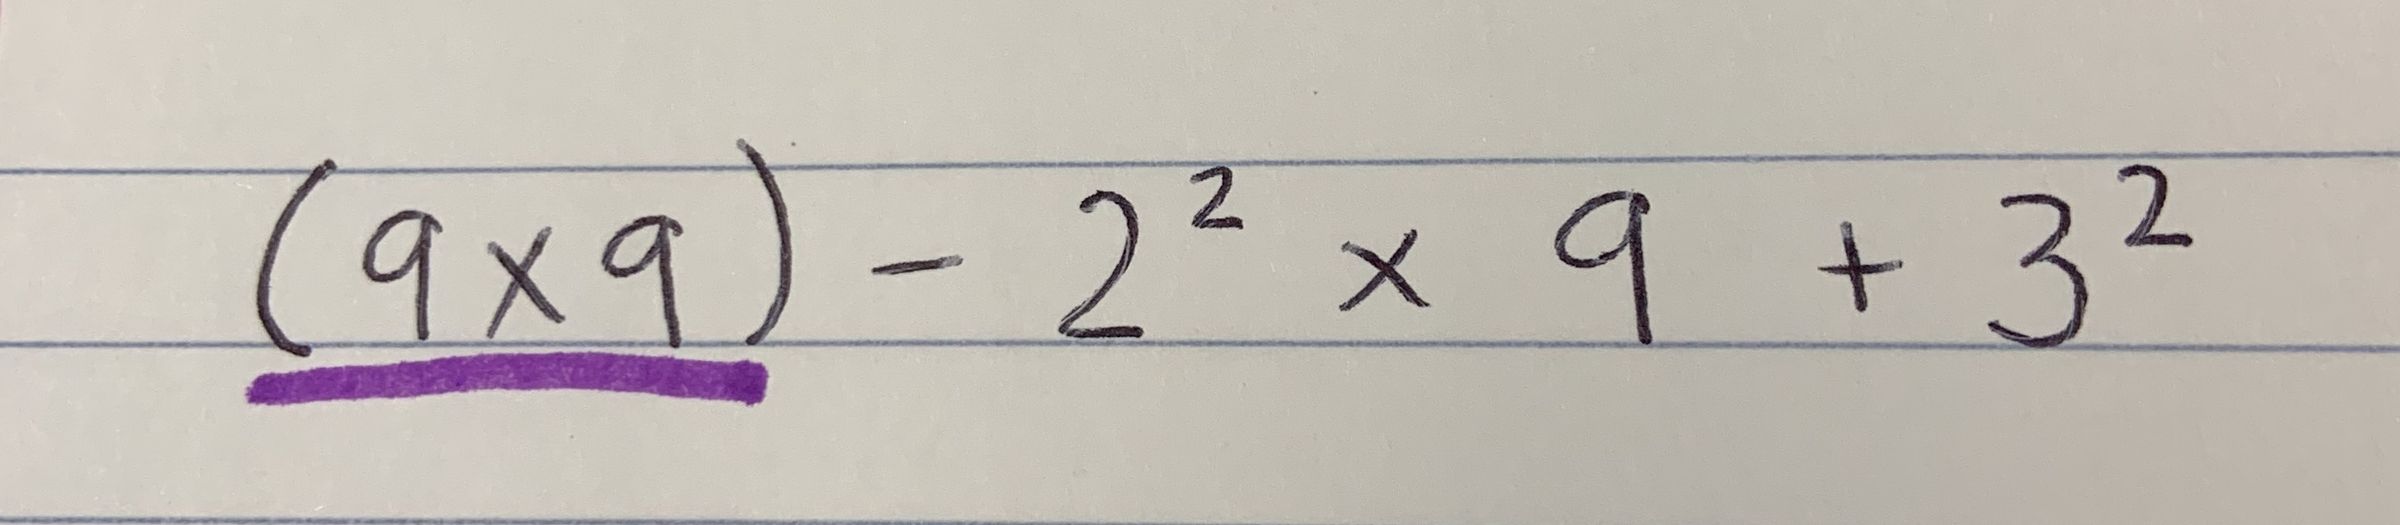 (9×9) - 2² × 9 + 3²